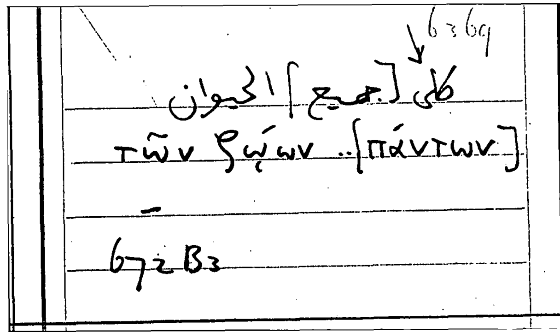 6369
كلى [جميع] الحيوان
τῶν ζῴων ..[πάντων]
–
672B3